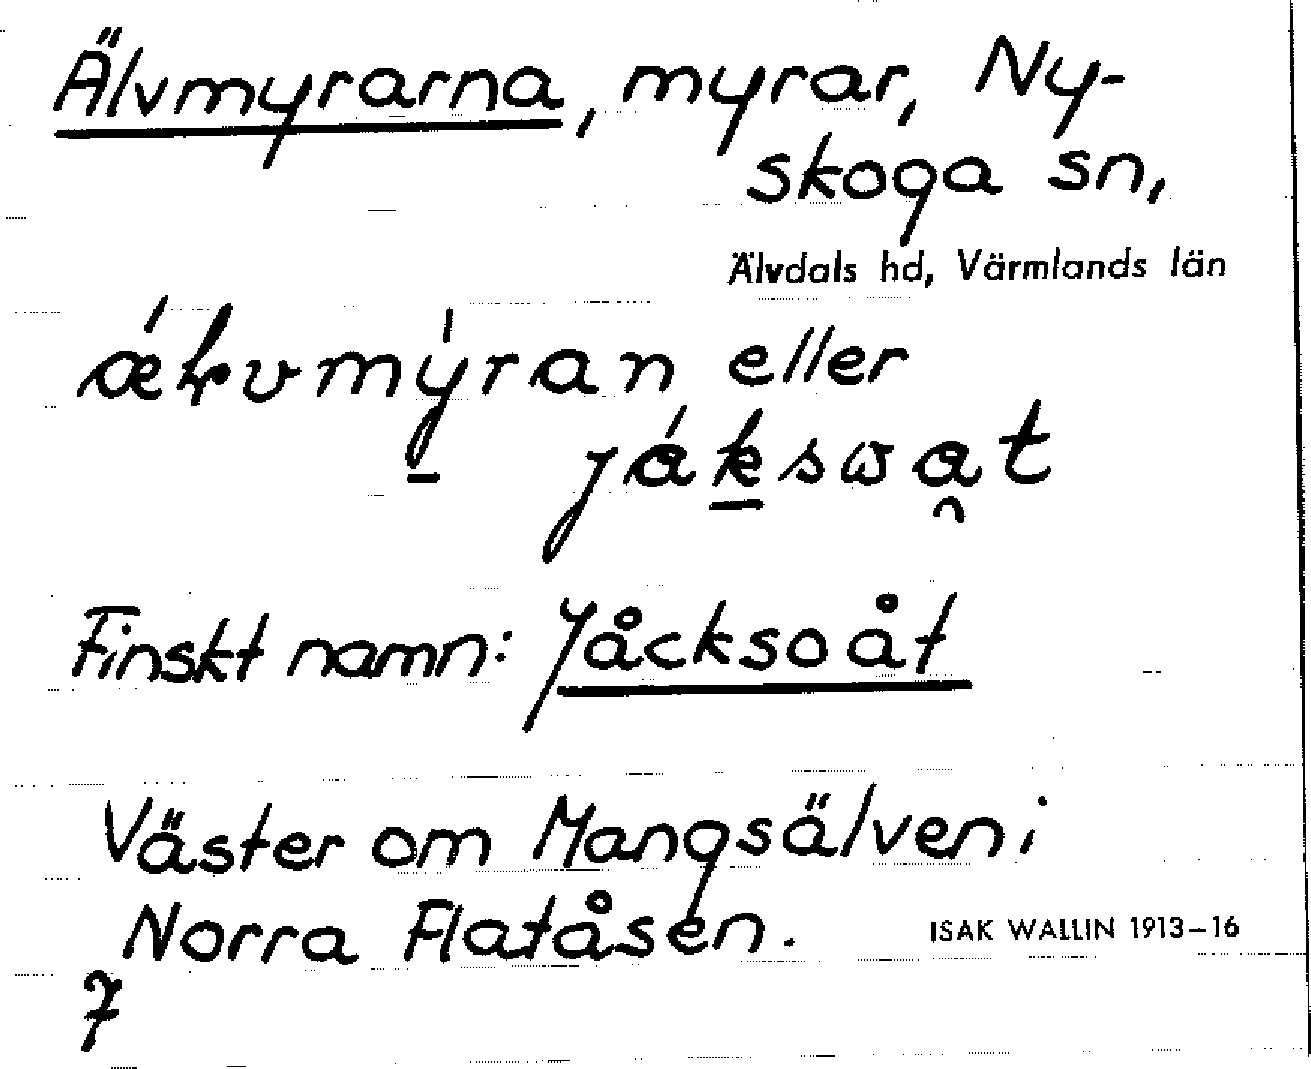 Älvmyrarna, myrar, Ny-
skoga sn,
Älvdals hd, Värmlands län
ǽlvmýran eller
jákswat
Finskt namn: Jåcksoåt
Väster om Mangsälven i
Norra Flatåsen.
ISAK WALLIN 1913–16
7